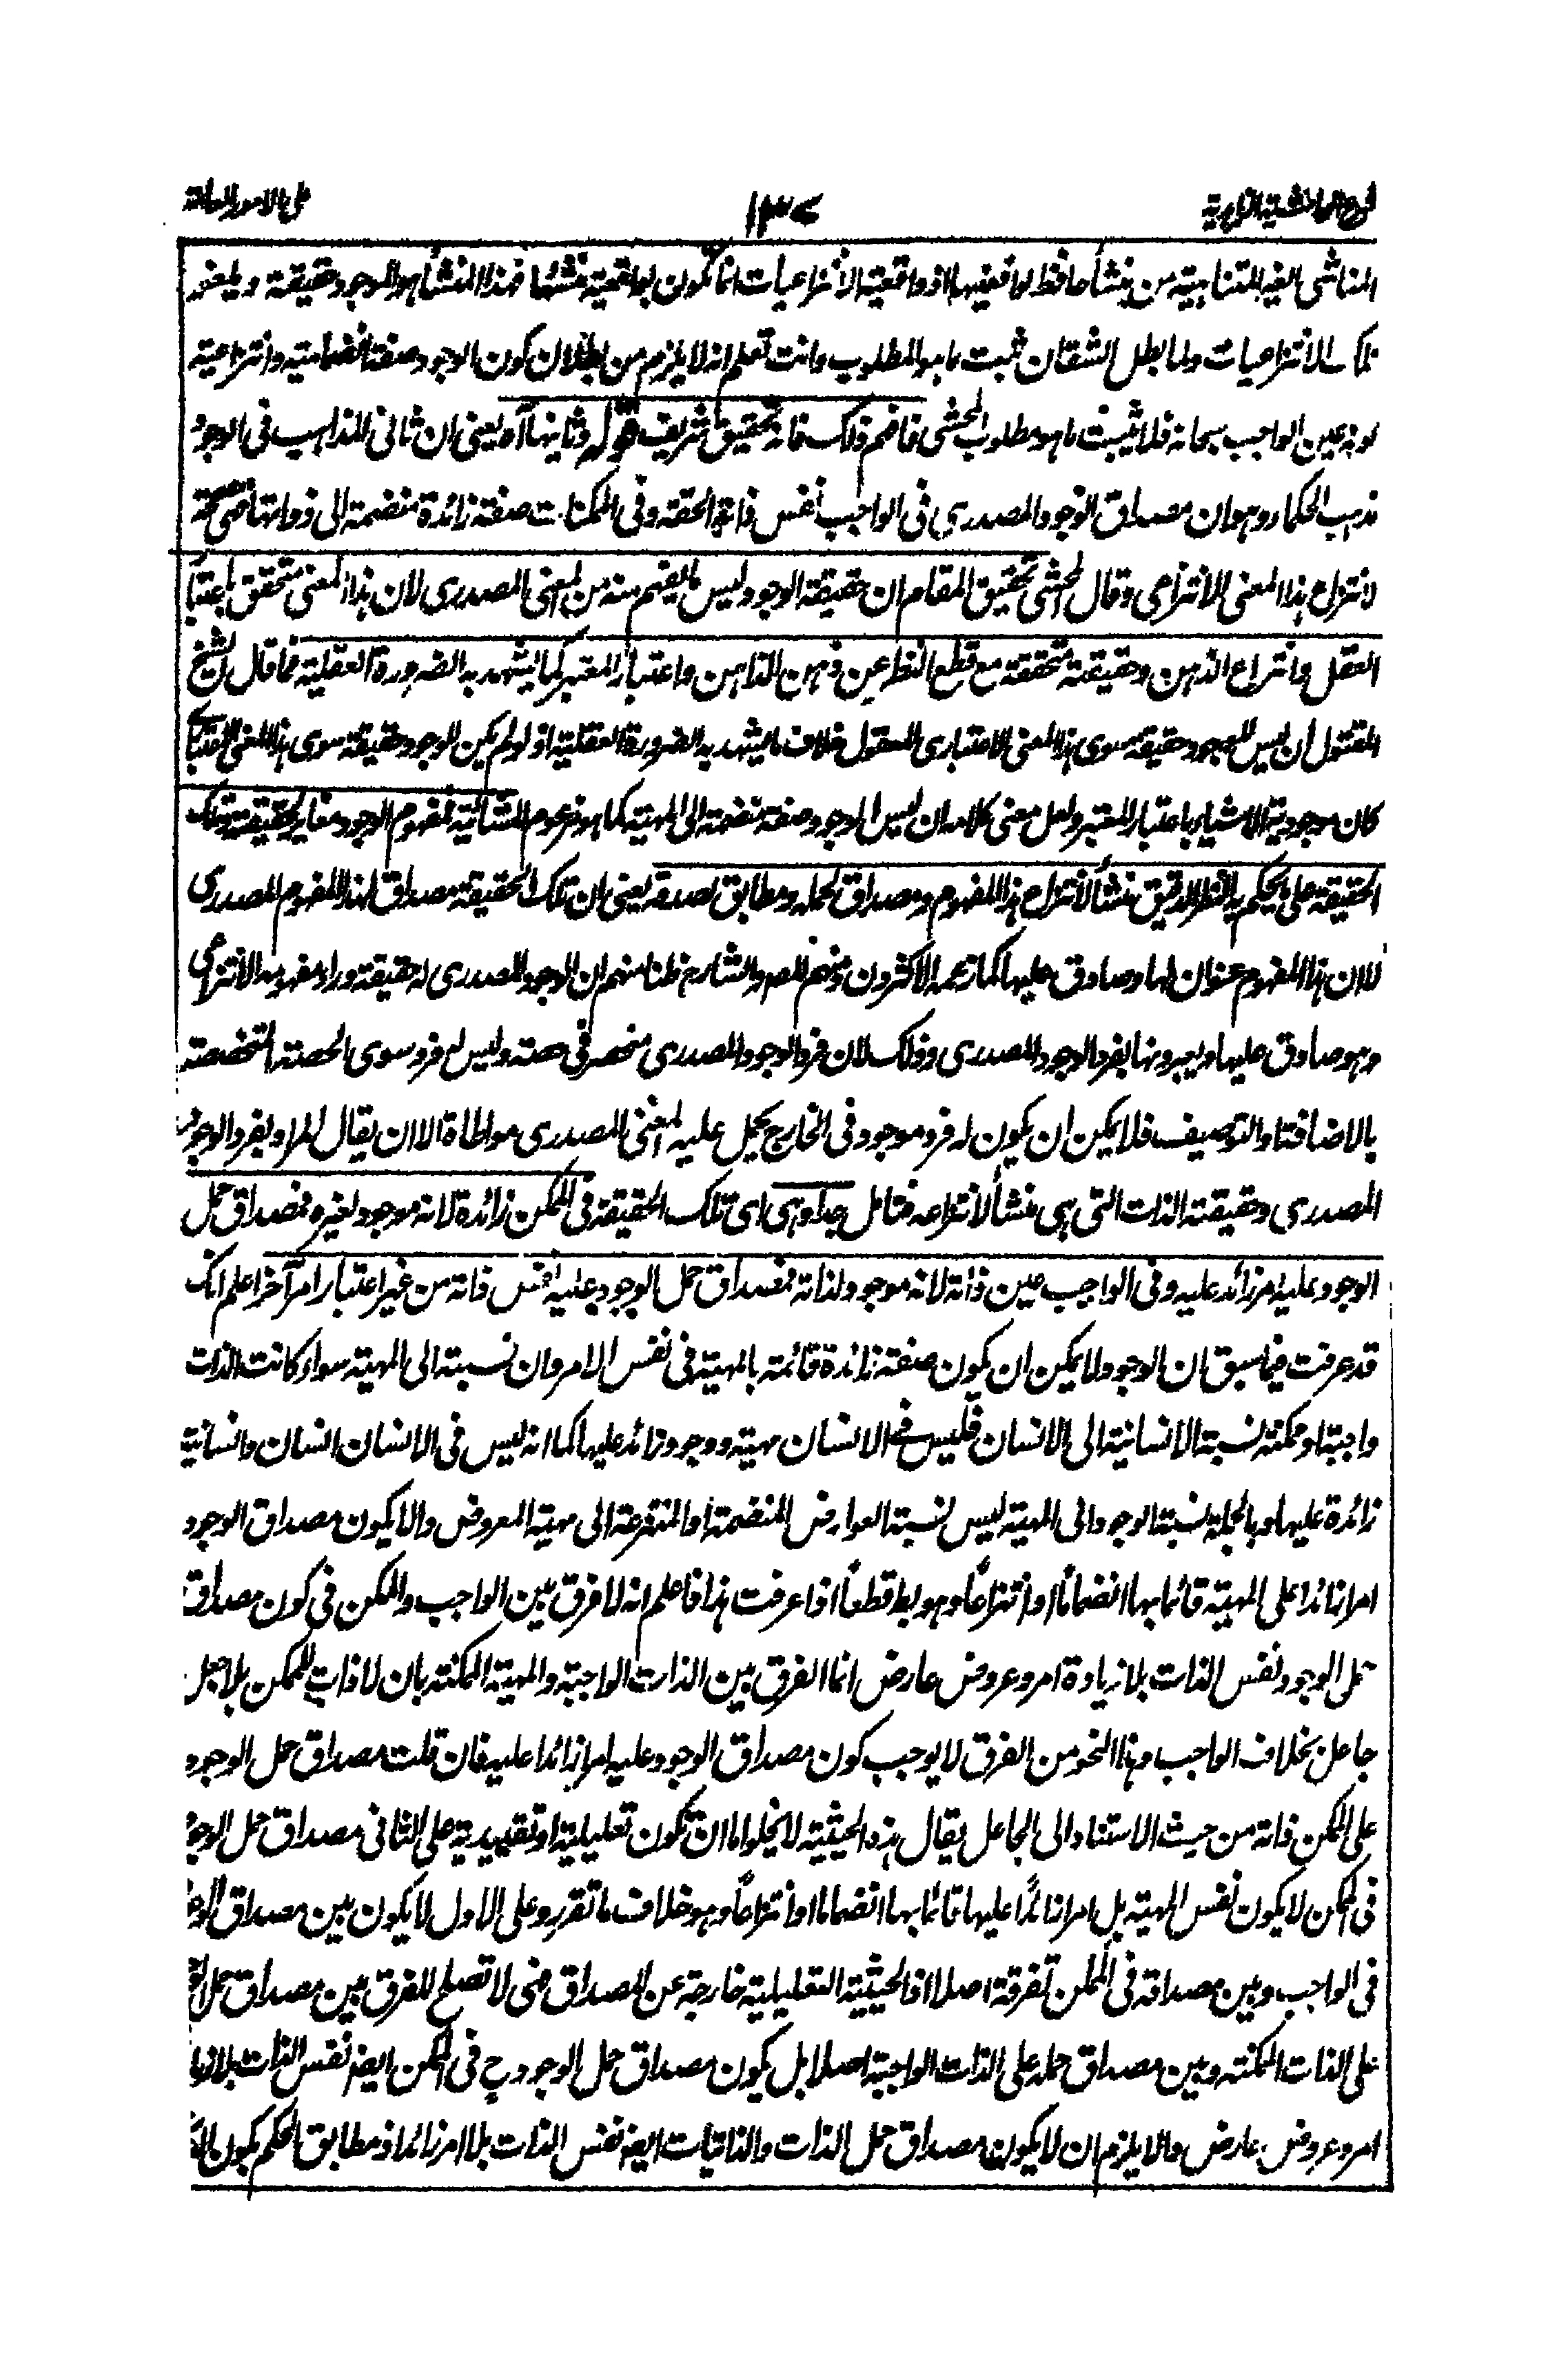 شرح الحاشية الزاهدية ١٣٧ على الامور العامة
المناشى الغير المتناهية من منشأ حافظ لواقعيتها اذ واقعية الانتزاعيات انما تكون بواقعية منشئها فهذا المنشأ هو الوجود حقيقة ويلغو
تلك الانتزاعيات ولما بطل الشقان ثبت ما هو المطلوب وانت تعلم انه لا يلزم من بطلان كون الوجود صفة انضمامية وانتزاعية
كونه عين الواجب سبحانه فلا يثبت ما هو مطلوب المحشى فافهم ذلك فانه تحقيق شريف قوله وثانيها آه يعنى ان ثانى المذاهب فى الوجود
مذهب الحكماء وهو ان مصداق الوجود المصدرى فى الواجب نفس ذاته الحقة وفى الممكنات صفة زائدة منضمة الى ذواتها مصححة
لانتزاع هذا المعنى الانتزاعى وقال المحشى تحقيق المقام ان حقيقة الوجود ليس ما يفهم منه من المعنى المصدرى لان هذا المعنى متحقق باعتبار
العقل وانتزاع الذهن وحقيقته متحققة مع قطع النظر عن ذهن الذاهن واعتبار المعتبر كما يشهد به الضرورة العقلية فما قال الشيخ
المقتول ان ليس للوجود حقيقة سوى هذا المعنى الاعتبارى المعقول خلاف ما يشهد به الضرورة العقلية اذ لو لم يكن للوجود حقيقة سوى هذا المعنى الاعتبارى
كان موجودية الاشياء باعتبار المعتبر ولعل معنى كلامه ان ليس الوجود صفة منضمة الى المهية كما هو مزعوم المشائية فمفهوم الوجود مغاير لحقيقته وتلك
الحقيقة على ما يحكم به النظر الدقيق منشأ لانتزاع هذا المفهوم ومصداق لحمله ومطابق لصدقه يعنى ان تلك الحقيقة مصداق لهذا المفهوم المصدرى
لا ان هذا المفهوم عنوان لها وصادق عليها كما زعمه الاكثرون ومنهم المصنف والشارح ظنا منهم ان للوجود المصدرى له حقيقة وراء مفهومه الانتزاعى
وهو صادق عليها ويعبرونها بفرد الوجود المصدرى وذلك لان فرد الوجود المصدرى منحصر فى حصته وليس له فرد سوى الحصة المتخصصة
بالاضافة او التوصيف فلا يمكن ان يكون له فرد موجود فى الخارج يحمل عليه المعنى المصدرى مواطاة الا ان يقال المراد بفرد الوجود
المصدرى وحقيقته الذات التى هى منشأ لانتزاعه فتامل جدا وهى اى تلك الحقيقة فى الممكن زائدة لانه موجود لغيره فمصداق حمل
الوجود عليه امر زائد عليه وفى الواجب عين ذاته لانه موجود لذاته فمصداق حمل الوجود عليه نفس ذاته من غير اعتبار امر آخر اعلم انك
قد عرفت فيما سبق ان الوجود لا يمكن ان يكون صفة زائدة قائمة بالمهية فى نفس الامر وان نسبته الى المهية سواء كانت الذات
واجبة او ممكنة نسبة الانسانية الى الانسان فليس فى الانسان مهية ووجود زائد عليها كما انه ليس فى الانسان انسان وانسانية
زائدة عليها وبالجملة نسبة الوجود الى المهية ليس نسبة العوارض المنضمة او المنتزعة الى مهية المعروض والا يكون مصداق الوجود
امرا زائدا على المهية قائما بها انضماما او انتزاعا وهو بط قطعا اذا عرفت هذا فاعلم انه لا فرق بين الواجب والممكن فى كون مصداق
حمل الوجود نفس الذات بلا زيادة امر وعروض عارض انما الفرق بين الذات الواجبة والمهية الممكنة بان لا ذات للممكن بلا جعل
جاعل بخلاف الواجب وهذا النحو من الفرق لا يوجب كون مصداق الوجود عليه امرا زائدا عليه فان قلت مصداق حمل الوجود
على الممكن ذاته من حيث الاستناد الى الجاعل يقال هذه الحيثية لا يخلوا ما ان تكون تعليلية او تقييدية على الثانى مصداق حمل الوجود
فى الممكن لا يكون نفس المهية بل امرا زائدا عليها قائما بها انضماما او انتزاعا وهو خلاف ما تقرر وعلى الاول لا يكون بين مصداق الوجود
فى الواجب وبين مصداقه فى الممكن تفرقة اصلا اذ الحيثية التعليلية خارجة عن المصداق فهى لا تصلح للفرق بين مصداق حمل الوجود
على الذات الممكنة وبين مصداق حمله على الذات الواجبة اصلا بل يكون مصداق حمل الوجود ح فى الممكن ايضا نفس الذات بلا زيادة
امر وعروض عارض والا يلزم ان لا يكون مصداق حمل الذات والذاتيات ايضا نفس الذات بلا امر زائد اذ مطابق الحكم بكون